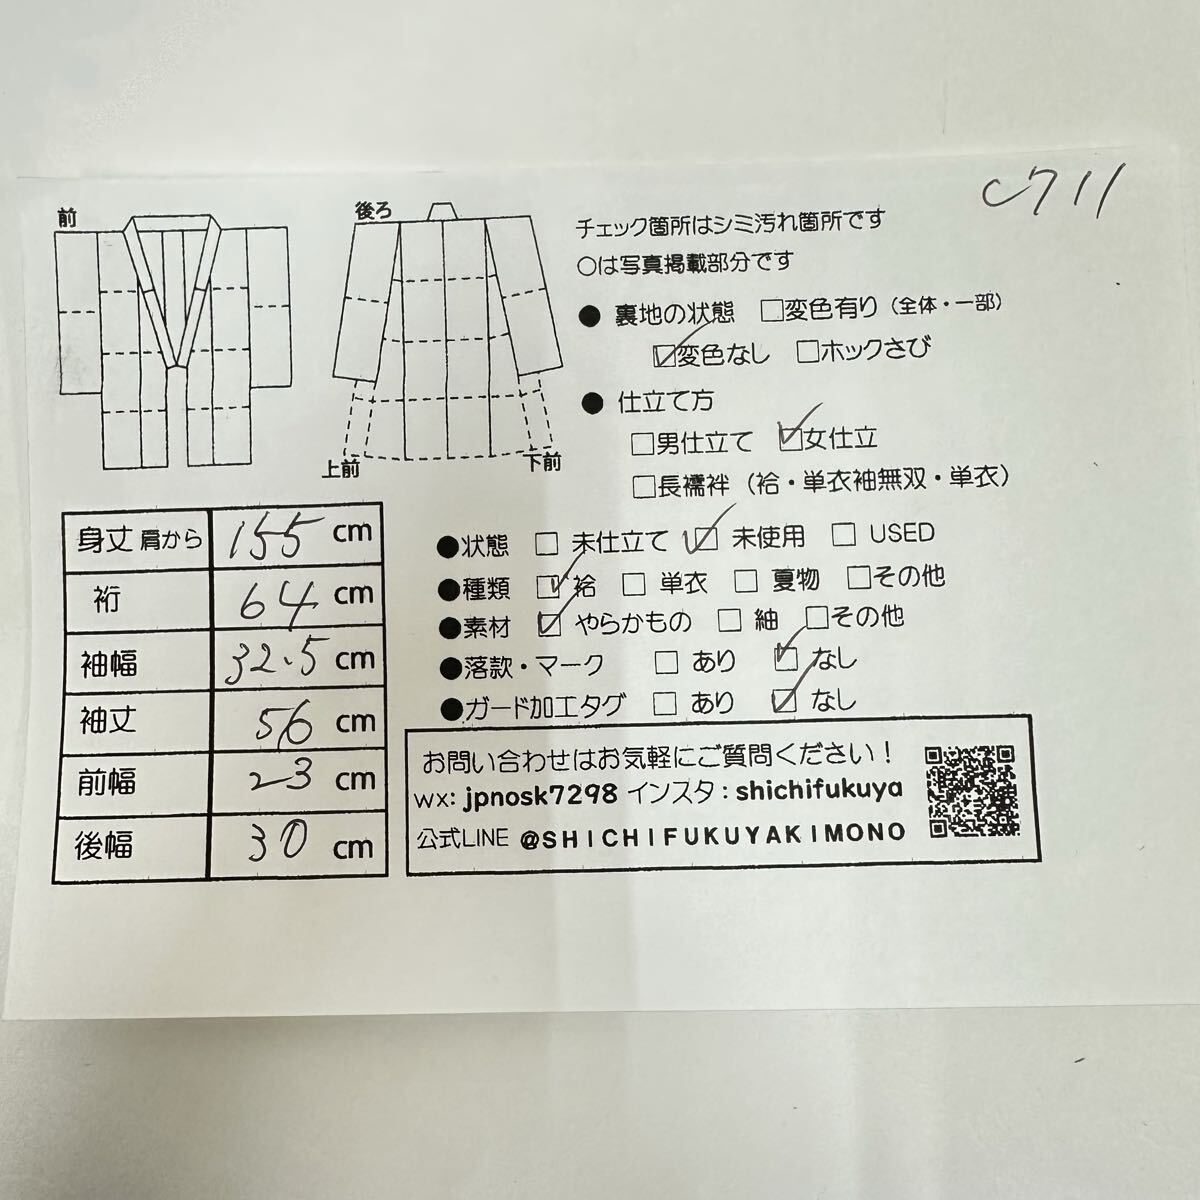 C711
前
後ろ
上前
下前
チェック箇所はシミ汚れ箇所です
○は写真掲載部分です
● 裏地の状態 □変色有り（全体・一部）
☑変色なし □ホックさび
● 仕立て方
□男仕立て ☑女仕立
□長襦袢（袷・単衣袖無双・単衣）
●状態 □ 未仕立て ☑ 未使用 □ USED
●種類 ☑ 袷 □ 単衣 □ 夏物 □その他
●素材 ☑ やらかもの □ 紬 □その他
●落款・マーク □ あり ☑ なし
●ガード加工タグ □ あり ☑ なし
身丈 肩から 155 cm
裄 64 cm
袖幅 32.5 cm
袖丈 56 cm
前幅 23 cm
後幅 30 cm
お問い合わせはお気軽にご質問ください！
wx: jpnosk7298 インスタ：shichifukuya
公式LINE @SHICHIFUKUYAKIMONO